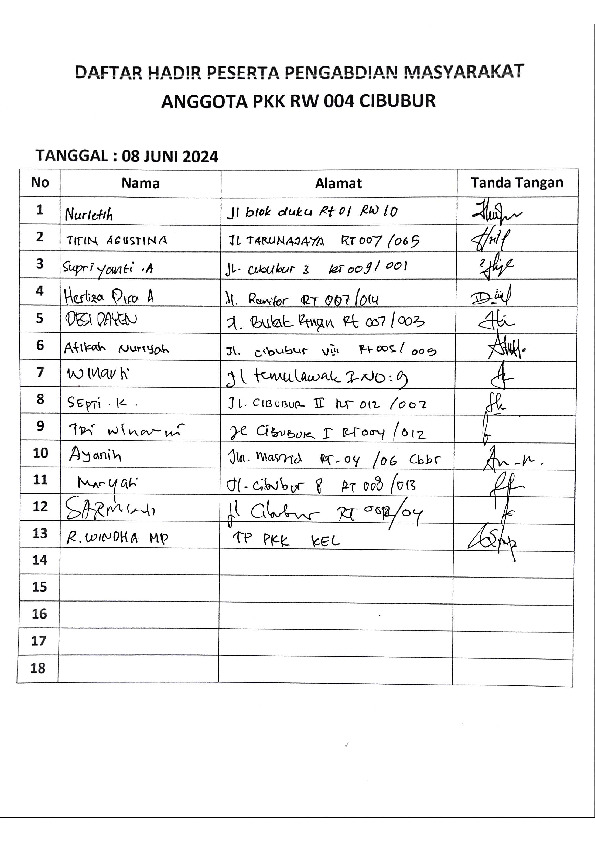 DAFTAR HADIR PESERTA PENGABDIAN MASYARAKAT
ANGGOTA PKK RW 004 CIBUBUR
TANGGAL : 08 JUNI 2024
No Nama Alamat Tanda Tangan
1 Nurletih Jl blok duku Rt 01 RW 10
2 TITIN AGUSTINA JL TARUNAJAYA RT 007/005
3 Supriyanti .A Jl. cibubur 3 RT 009/001
4 A Jl. RT 007/014
5 DESI Jl. Bulak Rt 007/003
6 Atikah Nuriyah Jl. cibubur VIII Rt 005/009
7 Winarti Jl temulawak I NO: 9
8 SEPTI . K . JL. CIBUBUR II RT 012 /002
9 TRI Winarni Jl CIBUBUR I RT 004 /012
10 Ayanih Jln. Masjid RT-04 /06 Cbbr
11 Maryati Jl. cibubur 8 RT 009 /013
12 Jl Cibubur RT /04
13 R. WINDHA MP TP PKK KEL
14
15
16
17
18